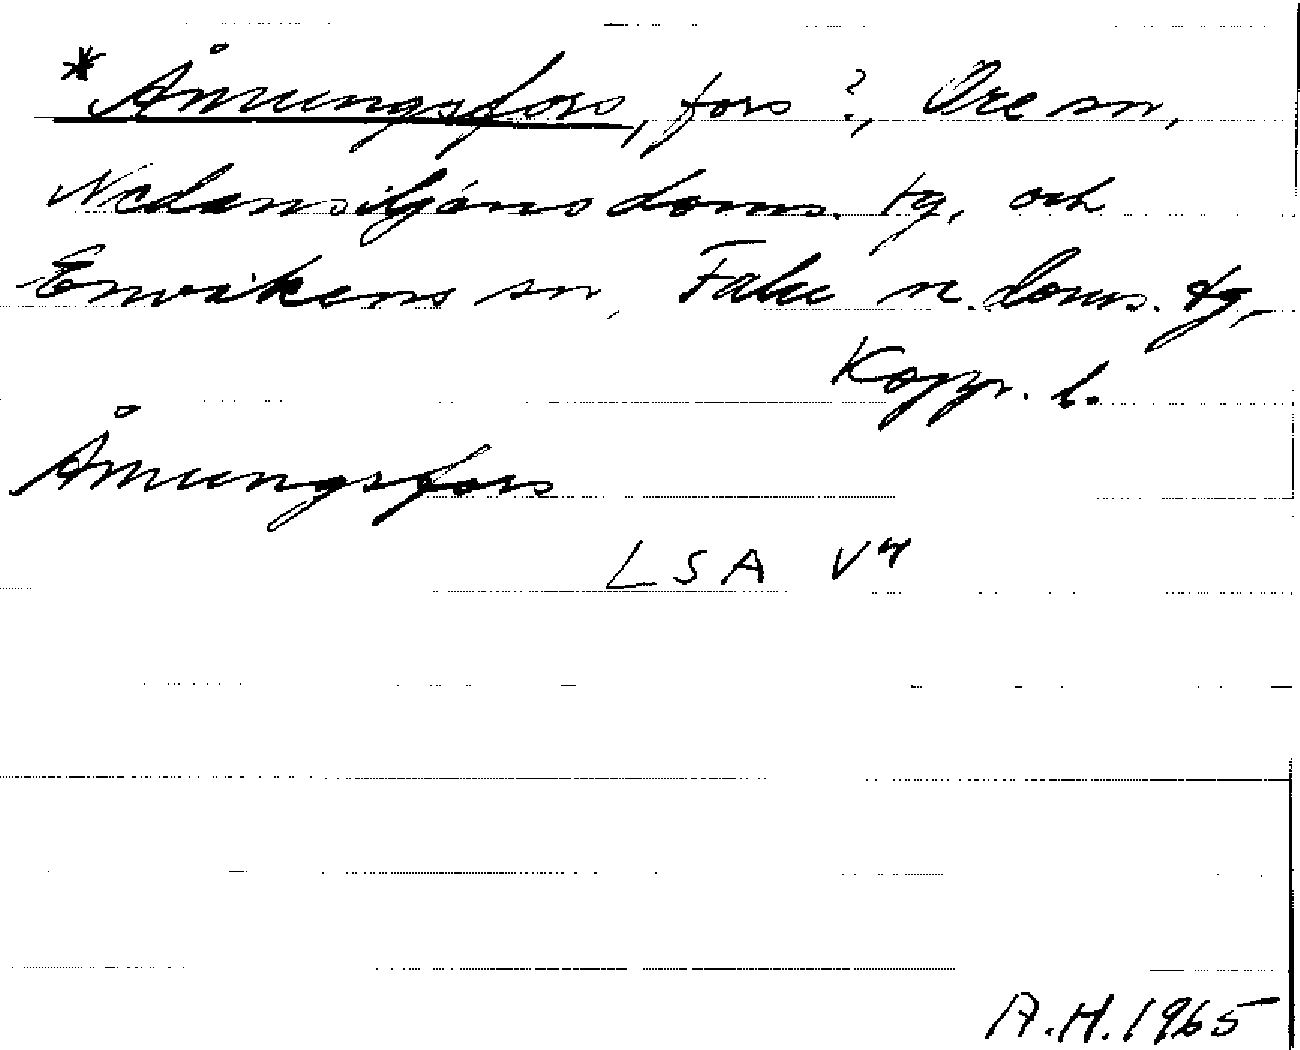 * Åmungsfors, fors?, Ore sn,
Nedansiljans doms. tg, och
Envikens sn, Falu n. doms. tg,
Kopp. l.
Åmungsfors
LSA V4
A.H. 1965